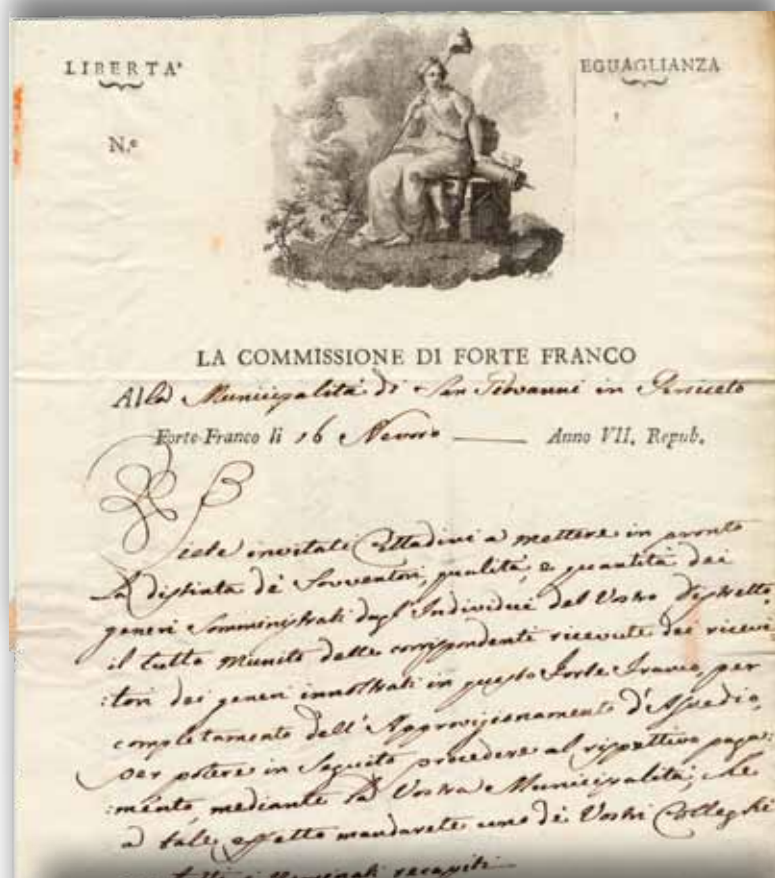 LIBERTA'
EGUAGLIANZA
N.º
LA COMMISSIONE DI FORTE FRANCO
Alla Municipalità di San Giovanni in Persiceto
Forte Franco li 16 Nevoso Anno VII. Repub.
Siete invitati Cittadini a mettere in pronto
la distinta de' Sovventori, qualità, e quantità dei
generi somministrati dagl'Individui del Vostro distretto
il tutto munito delle corrispondenti ricevute dei ricevi
:tori dei generi innoltrati in questo Forte Franco, per
completamento dell'Approvigionamento d'Assedio,
per potere in seguito procedere al rispettivo paga:
:mento, mediante la Vostra Municipalità, che
a tale effetto mandarete uno de' Vostri Colleghi
recapiti